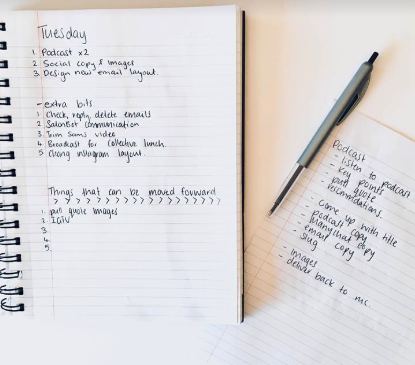 Tuesday
1. Podcast x2
2 Social copy & images
3. Design new email layout.
- extra bits
1 Check, reply, delete emails
2 communication
3 Trim Sam's video
4 Broadcast for Collective lunch.
5 Chang instagram layout.
Things that can be moved forward
> > > > > > > > > > > > > > > > > > >
1. pull quote images
2. IGTV
3
4.
5.
Podcast
- listen to podcast
- key points
- pull quote
- recomndations.
- come up with title
- podcast copy
- manychat copy
- email copy
- slug
- images
- deliver back to mc.